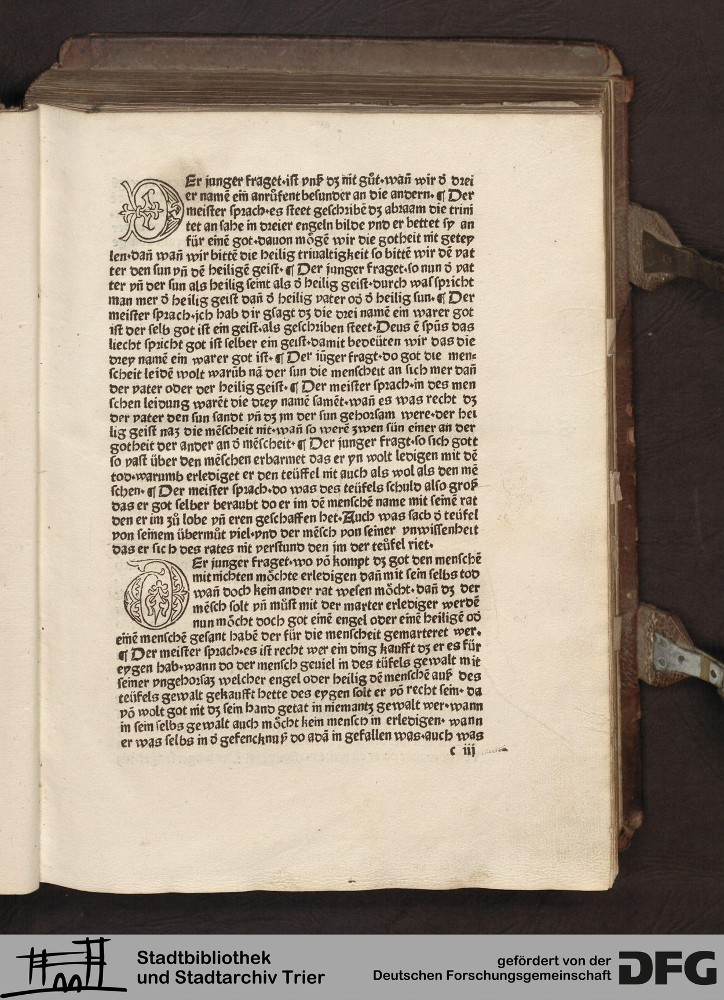 DEr junger fraget·ist vnß dz nit gůt·wañ wir ð drei
er namē eim̄ anrůfent besunder an die andern·¶ Der
meister sprach·es steet geschribē dz abraam die trini
tet an sahe in dreier engeln bilde vnd er bettet sy an
für einē got·dauon mögē wir die gotheit nit getey
len·dañ wañ wir bittē die heilig triualtigkeit so bittē wir dē vat
ter den sun vñ dē heiligē geist·¶ Der junger fraget·so nun ð vat
ter vñ der sun als heilig seint als ð heilig geist·durch was spricht
man mer ð heilig geist dañ ð heilig vater oð ð heilig sun·¶ Der
meister sprach·ich hab dir gsagt dz die drei namē ein warer got
ist der selb got ist ein geist·als geschriben steet·Deus ē spūs das
liecht spricht got ist selber ein geist·damit bedeüten wir das die
drey namē ein warer got ist·¶ Der iüger fragt·do got die men⸗
scheit leidē wolt warūb nā der sun die menscheit an sich mer dañ
der vater oder der heilig geist·¶ Der meister sprach·in des men
schen leidung warēt die drey name samēt·wañ es was recht dz
der vater den sun sandt vñ dz jm der sun gehorsam were·der hei
lig geist naz die mēscheit nit·wañ so werē zwen sün einer an der
gotheit der ander an ð mēscheit·¶ Der junger fragt·so sich gott
so vast über den mēschen erbarmet das er vn wolt ledigen mit dē
tod·warumb erlediget er den teüffel nit auch als wol als den mē
schen·¶ Der meister sprach·do was des teüfels schuld also groß
das er got selber beraubt do er im dē menschē name mit seinē rat
den er im zů lobe vñ eren geschaffen het·Auch was sach ð teüfel
von seinem übermůt viel·vnd der mēsch von seiner vnwissenheit
das er sich des rates nit verstund den jm der teüfel riet·
DEr junger fraget·wo vō kompt dz got den menschē
mit nichten möchte erledigen dañ mit sein selbs tod
wañ doch kein ander rat wesen möcht·dañ dz der
mēsch solt vñ můst mit der marter erlediger werdē
nun möcht doch got einē engel oder einē heiligē oð
einē menschē gesant habē der für die menscheit gemarteret wer·
¶ Der meister sprach·es ist recht wer ein ding kaufft dz er es für
eygen hab·wann do der mensch geuiel in des tüfels gewalt mit
seiner vngehorsaz welcher engel oder heilig dē menschē auß des
teüfels gewalt gekaufft hette des eygen solt er vō recht sein· da
vō wolt got nit dz sein hand getat in niemantz gewalt wer·wann
in sein selbs gewalt auch möcht kein mensch in erledigen· wann
er was selbs in ð gefencknuß do adā in gefallen was·auch was
c iij
Stadtbibliothek
und Stadtarchiv Trier
gefördert von der
Deutschen Forschungsgemeinschaft
DFG